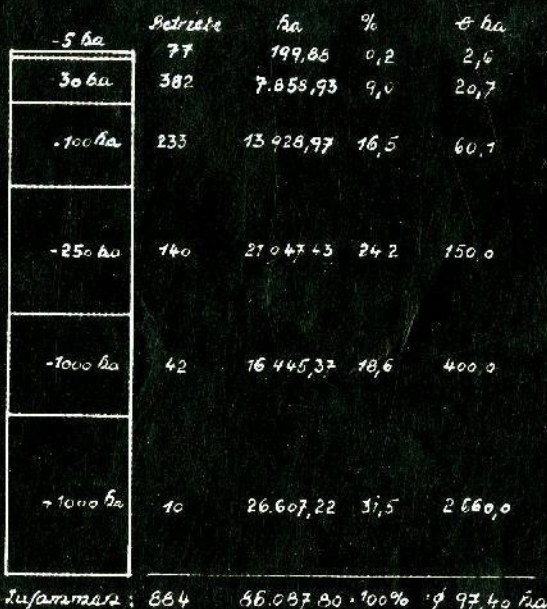 Betriebe ha % ⌀ ha
-5 ha 77 199,88 0,2 2,6
30 ha 382 7.858,93 9,0 20,7
-100 ha 233 13 928,97 16,5 60,1
-250 ha 140 21 047 43 24 2 150 0
-1000 ha 42 16 445,37 18,6 400 0
+1000 ha 10 26.607,22 31,5 2 660,0
Zusammen: 884 86.087 80 100% ⌀ 97 40 ha